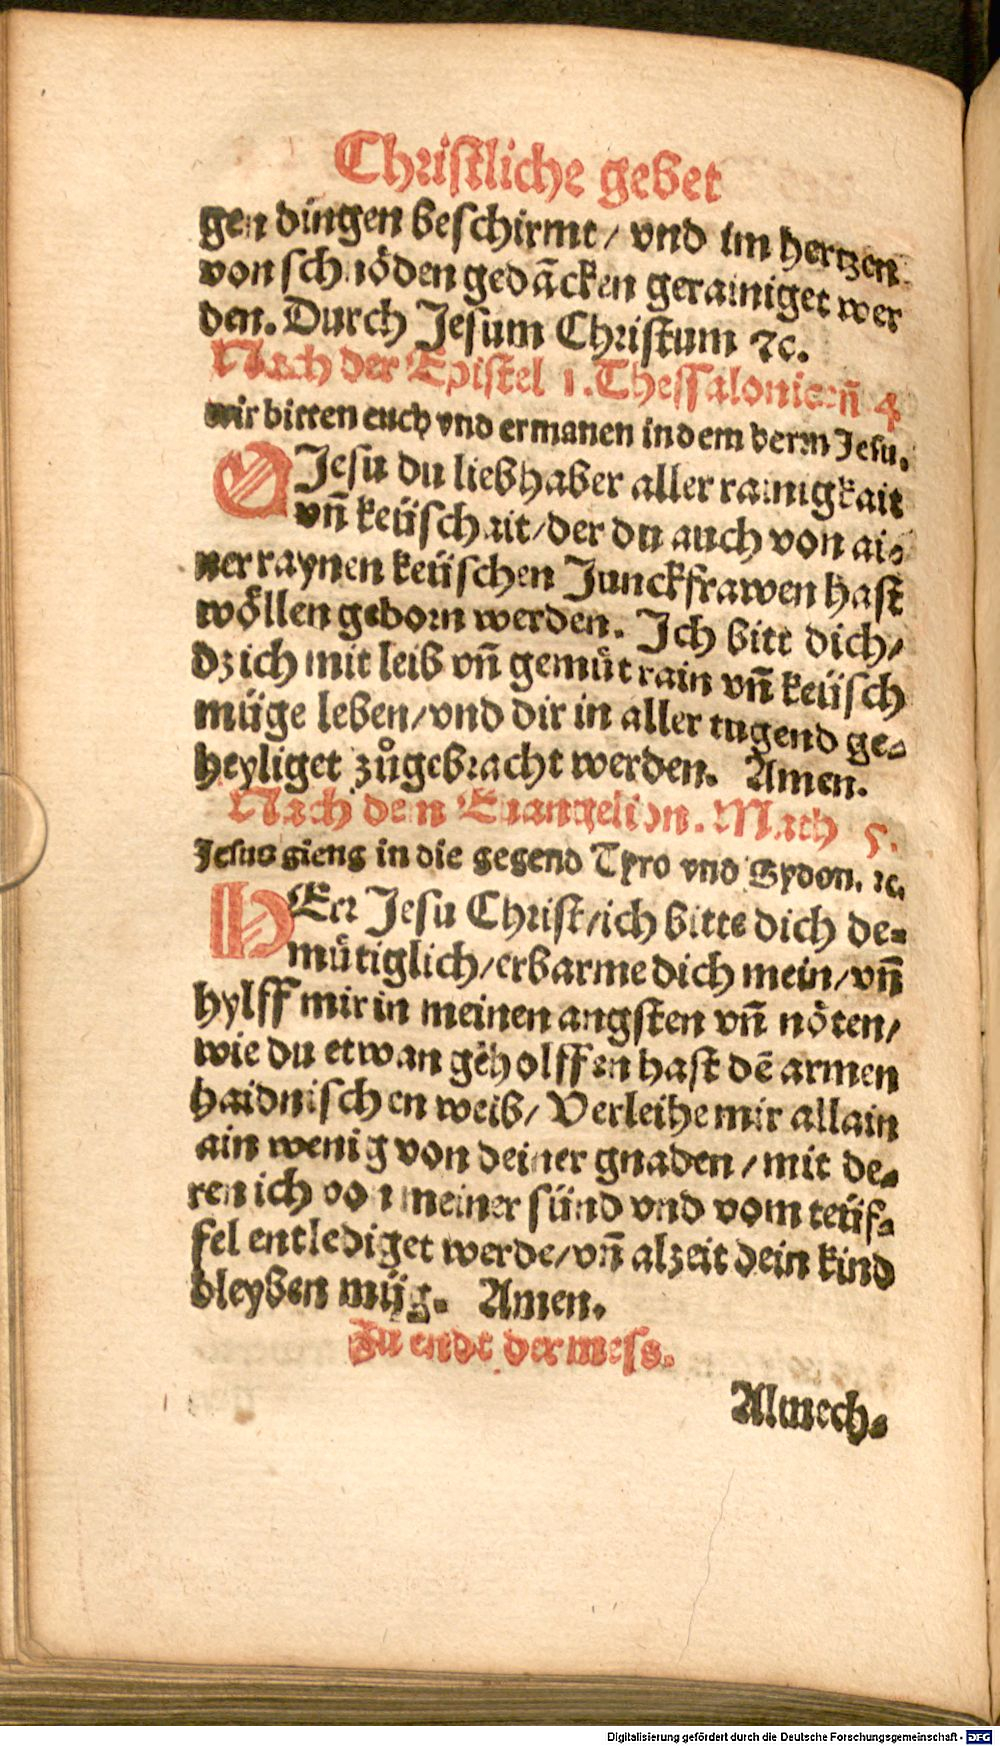 Christliche gebet
gen dingen beschirmt / vnd im hertzen
von schnöden gedäcken gerainiget wer
den. Durch Jesum Christum ⁊c.
Nach der Epistel 1. Thessaloniceñ 4
wir bitten euch vnd ermanen in dem herrn Jesu.
O Jesu du liebhaber aller rainigkait
vñ keüschait / der du auch von ai⸗
ner raynen keüschen Junckfrawen hast
wöllen geborn werden. Ich bitt dich /
dz ich mit leib vñ gemuͤt rain vñ keüsch
müge leben / vnd dir in aller tugend ge⸗
heyliget zuͦgebracht werden. Amen.
Nach dem Euangelion. Math 5.
Jesus gieng in die gegend Tyro vnd Sydon. ⁊c.
HErr Jesu Christ / ich bitte dich de⸗
muͤtiglich / erbarme dich mein / vñ
hylff mir in meinen angsten vñ nöten /
wie du etwan geholffen hast dē armen
haidnischen weib / Verleihe mir allain
ain wenig von deiner gnaden / mit de⸗
ren ich von meiner sünd vnd vom teüf⸗
fel entlediget werde / vñ alzeit dein kind
bleyben müg. Amen.
Zu endt der mess.
Almech⸗
Digitalisierung gefördert durch die Deutsche Forschungsgemeinschaft - DFG